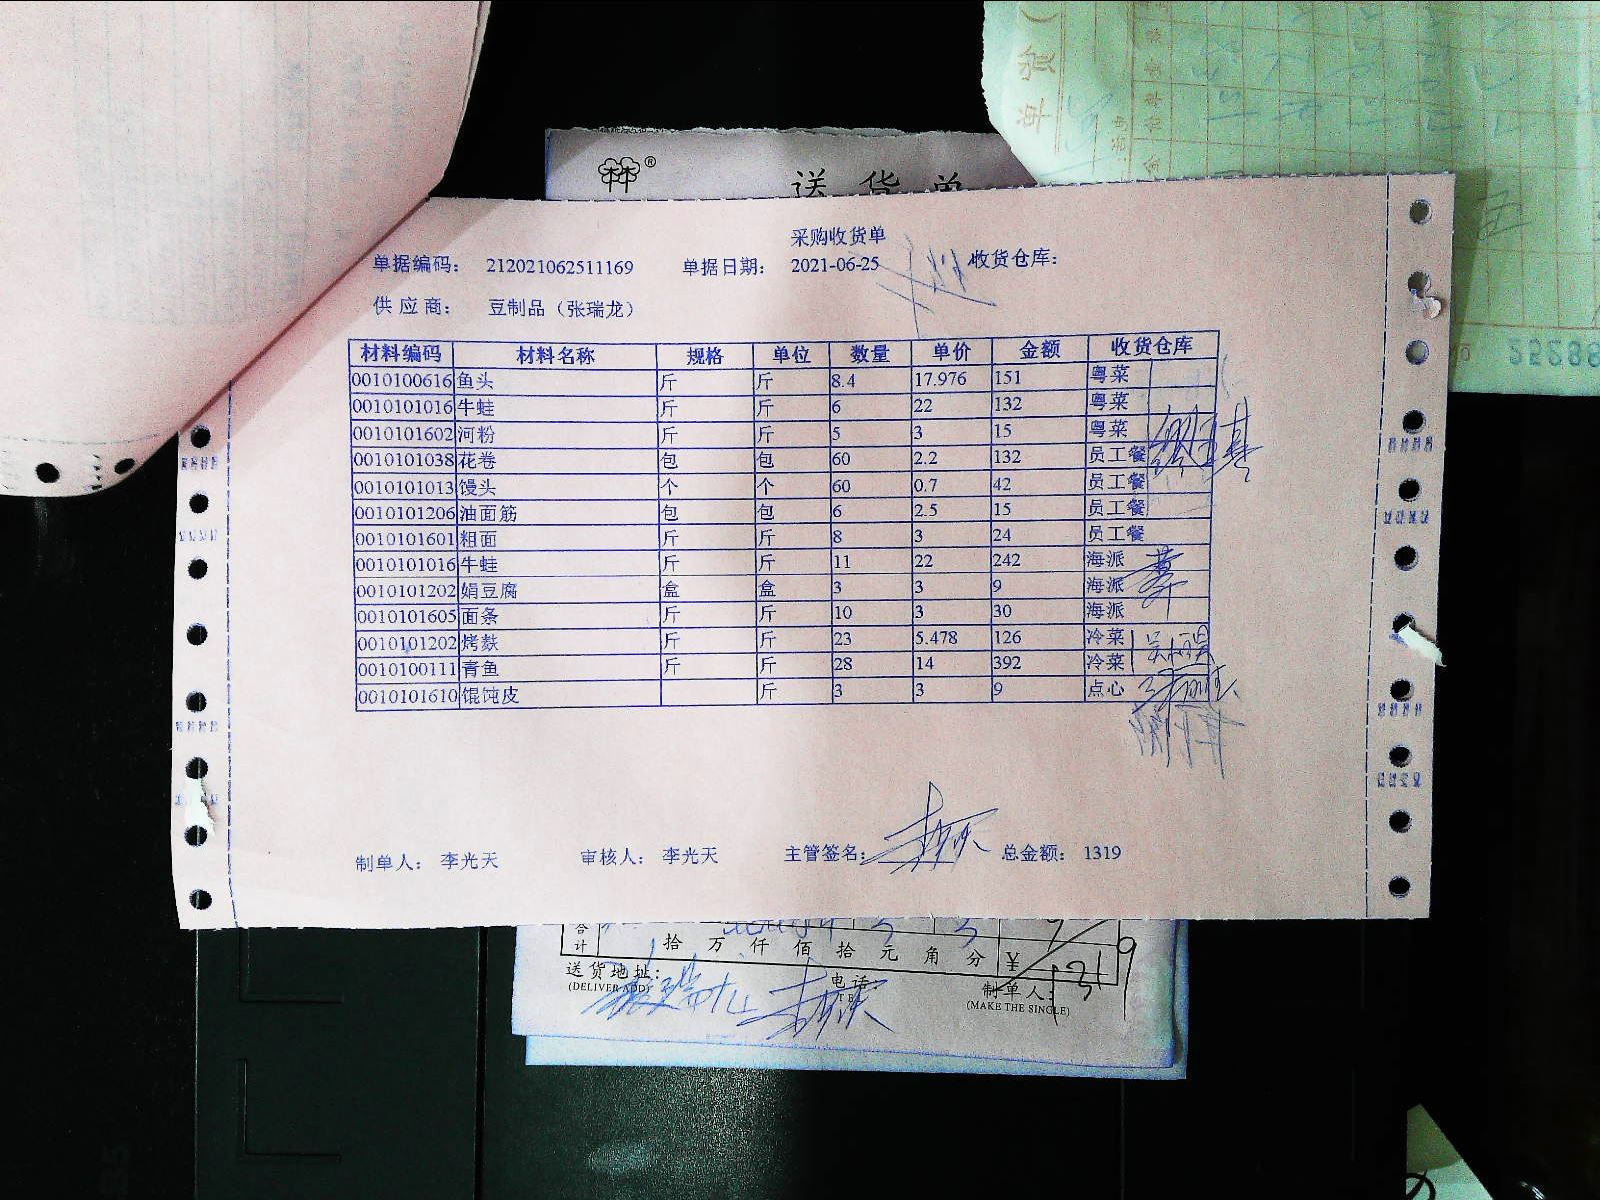 ®
送货单
采购收货单
单据编码： 212021062511169 单据日期： 2021-06-25 收货仓库：
供应商： 豆制品（张瑞龙）
材料编码 材料名称 规格 单位 数量 单价 金额 收货仓库
0010100616 鱼头 斤 斤 8.4 17.976 151 粤菜
0010101016 牛蛙 斤 斤 6 22 132 粤菜
0010101602 河粉 斤 斤 5 3 15 粤菜
0010101038 花卷 包 包 60 2.2 132 员工餐
0010101013 馒头 个 个 60 0.7 42 员工餐
0010101206 油面筋 包 包 6 2.5 15 员工餐
0010101601 粗面 斤 斤 8 3 24 员工餐
0010101016 牛蛙 斤 斤 11 22 242 海派
0010101202 娟豆腐 盒 盒 3 3 9 海派
0010101605 面条 斤 斤 10 3 30 海派
0010101202 烤麸 斤 斤 23 5.478 126 冷菜
0010100111 青鱼 斤 斤 28 14 392 冷菜
0010101610 馄饨皮 斤 3 3 9 点心
制单人： 李光天 审核人： 李光天 主管签名： 总金额： 1319
合计 拾万仟佰拾元角分 ¥ 1319
送货地址：
(DELIVER ADD)
电话：
TEL
制单人：
(MAKE THE SINGLE)